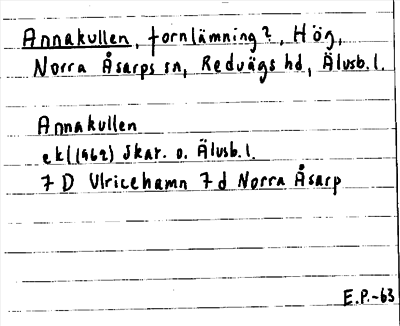 Annakullen, fornlämning?, Hög,
Norra Åsarps sn, Redvägs hd, Älvsb.l.
Annakullen
ekl(1962) Skar. o. Älvsb.l.
7 D Ulricehamn 7 d Norra Åsarp
E.P.-63